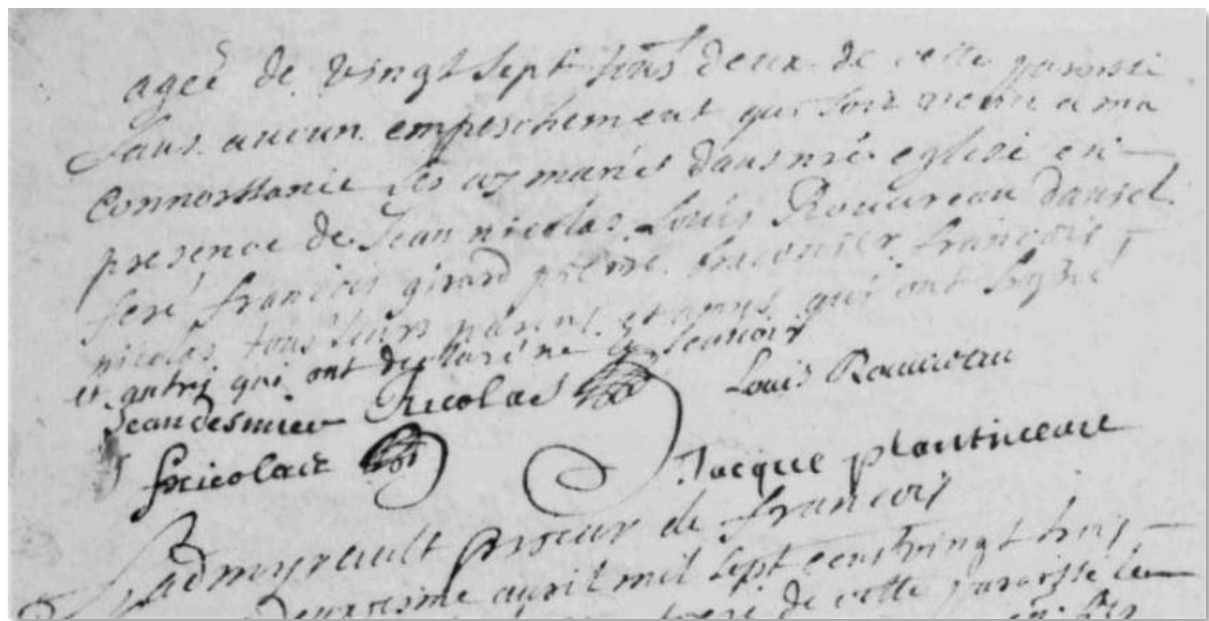 agee de vingt sept tous deux de cette paroisse
sans aucun empeschement qui soit venu a ma
connoissance les ay mariés dans nre eglise en
presence de Jean nicolas Louis Rouureau daniel
feré francois girard pierre francois
nicolas tous leurs parens et amys qui ont signé
et autres qui ont declaré ne le scauoir
Jean desmier Nicolas Louis Rouureau
fnicolas Jacque plantineau
Ladmyrault de francois
deuxiesme auril mil sept cent vingt trois
de cette paroisse